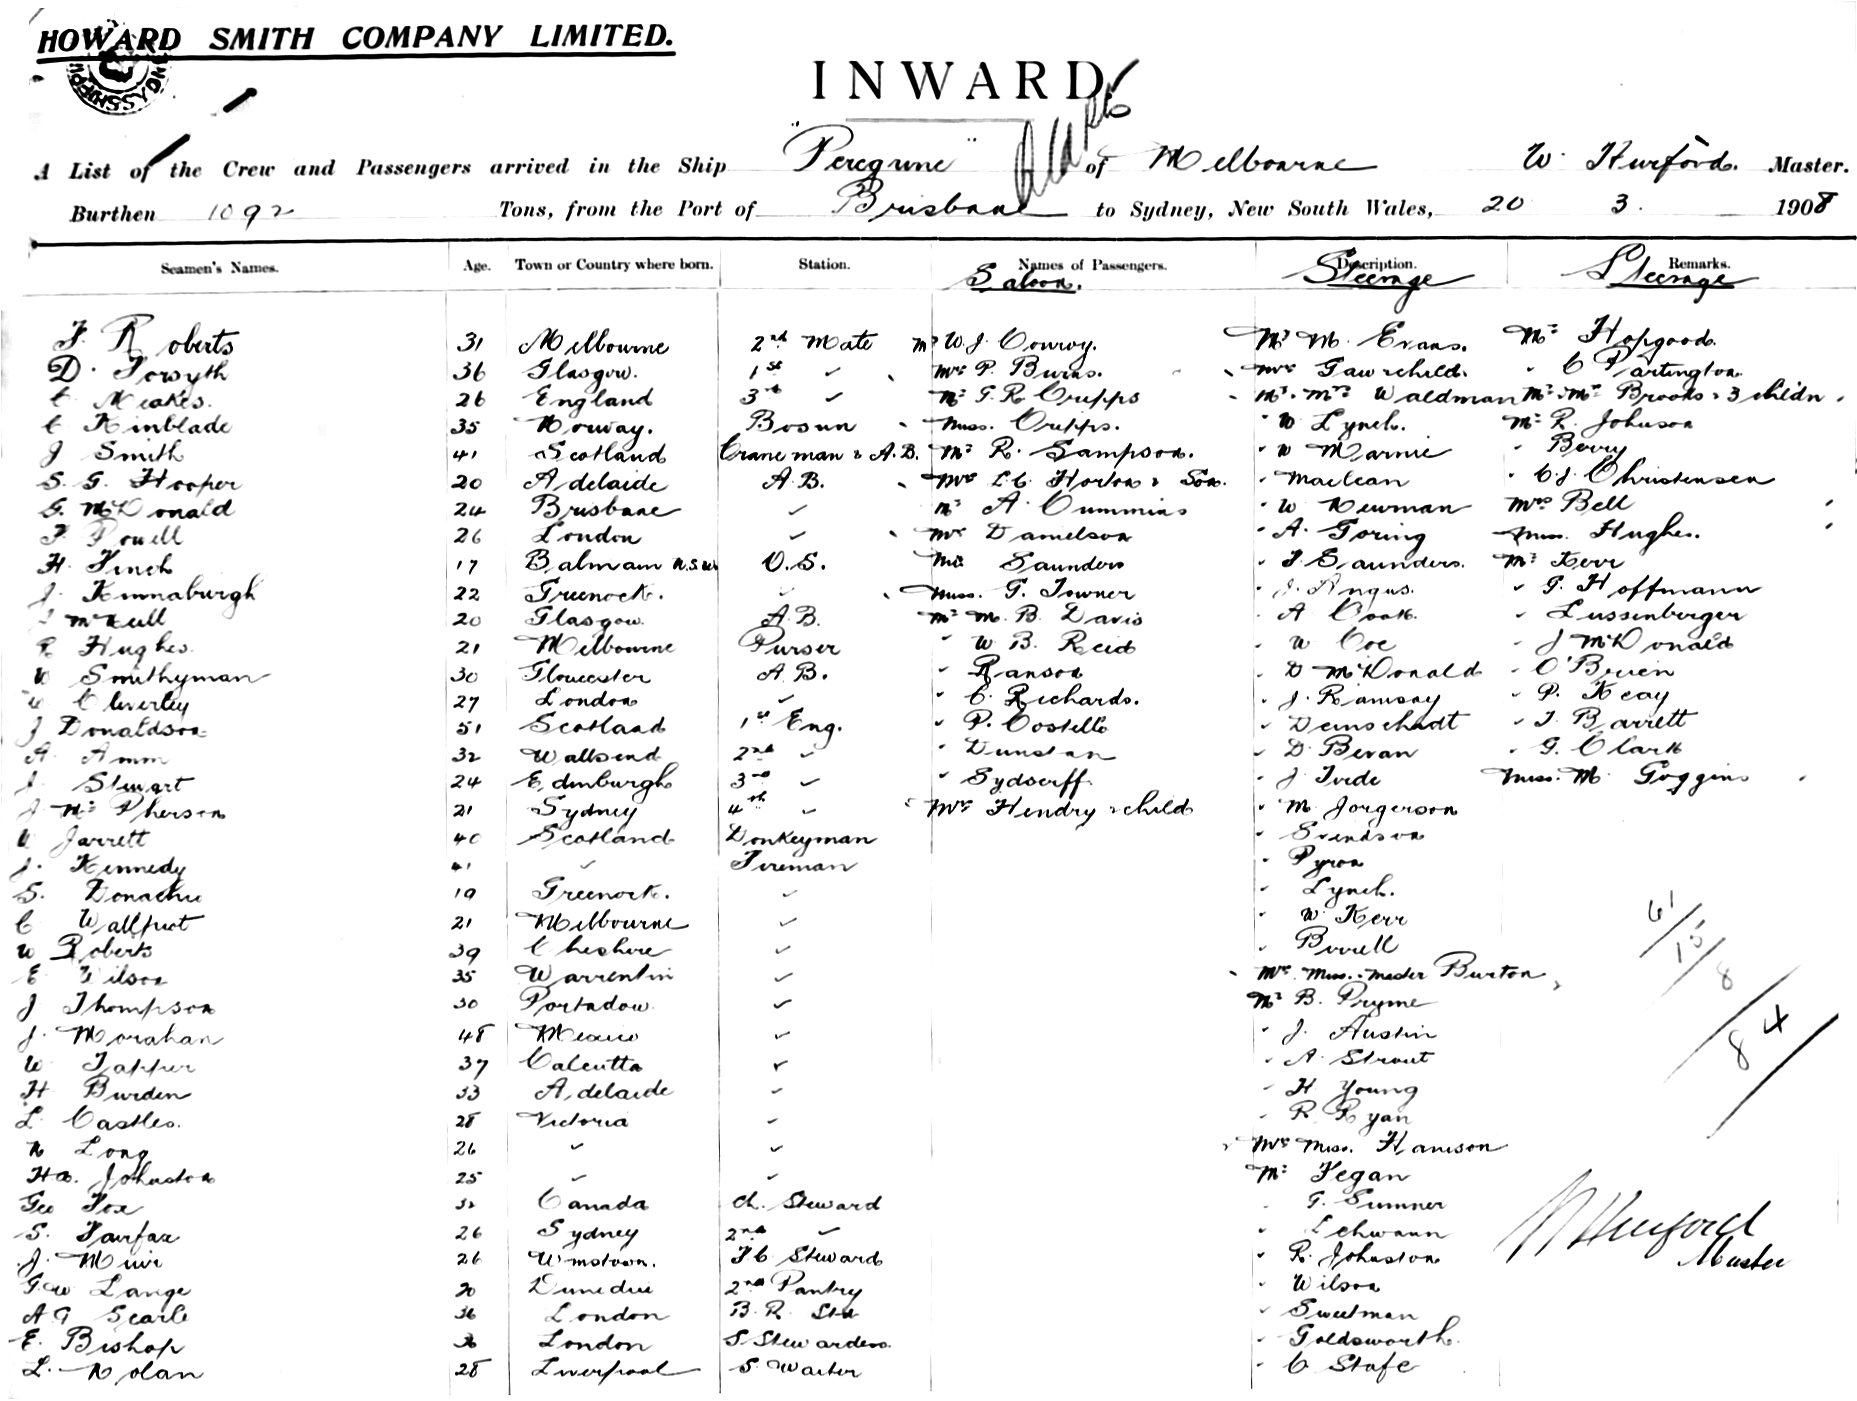 HOWARD SMITH COMPANY LIMITED.
INWARD.
A List of the Crew and Passengers arrived in the Ship "Peregrine" of Melbourne W. Hurford. Master.
Burthen 1092 Tons, from the Port of Brisbane to Sydney, New South Wales, 20 3. 1908
Seamen's Names. Age. Town or Country where born. Station. Names of Passengers. Description. Remarks.
Saloon. Steerage Steerage
F. Roberts 31 Melbourne 2nd Mate Mr W. J. Conroy. Mr M. Evans. Mr Hopgood.
D. Forsyth 36 Glasgow. 1st " Mrs P. Burns. Mrs Gaw & child. " C Partington
C Meakes. 26 England 3rd " Mr G. R. Cripps Mr. Mrs Waldman Mr. Mrs Brooks & 3 childn.
C Kinblade 35 Norway. Bosun Miss. Cripps. " W Lynch. Mr R. Johnson
J Smith 41 Scotland Crane man & A.B. Mr R. Sampson. " W Marnie " Berry
S. G. Hooper 20 Adelaide A.B. Mrs L. C. Horton & Son. " Maclean " C. J. Christensen
G. McDonald 24 Brisbane " Mr A Cummins " W Newman Mrs Bell
F. Powell 26 London " Mrs Danielson " A. Goring Miss. Hughes.
H. Finch 17 Balmain N.S.W. O.S. Saunders " F. Saunders. Mr Kerr
J. Kinnaburgh 22 Greenock. " Miss. G. Towner " J. Angus. " G. Hoffmann
20 Glasgow. A.B. Mr M. B. Davis " A Cook. " Lussenberger
R Hughes. 21 Melbourne Purser " W B. Reid " W Coe " J McDonald
W Smithyman 30 Gloucester A.B. " Ranson " D McDonald " O'Brien
W Cleverley 27 London " " C. Richards. " J. Ramsay " P. Keay
J Donaldson 51 Scotland 1st Eng. " P. Costello " Deinschadt " T Barrett
A. Amm 32 Wallsend 2nd " " Dunstan " D. Bevan " G. Clark
J. Stewart 24 Edinburgh 3rd " " Sydserff " J Tvede Miss. M. Goggins
J. McPherson 21 Sydney 4th " Mrs Hendry & child " M Jorgerson
W Jarrett 40 Scotland Donkeyman " Svendson
J. Kennedy 41 " Fireman " Pyron
S. Donachie 19 Greenock. " " Lynch.
C Wallfret 21 Melbourne " " W Kerr
W Roberts 39 Cheshire " " Birrell
E Wilson 35 Warrentin " Mrs Miss. Master Burton
J Thompson 30 Portadow. " Mr B. Pryme
J. Morahan 48 Mexico " " J. Austin
W Tapper 37 Calcutta " " A. Strout
H Burden 33 Adelaide " " H Young
L. Castles. 28 Victoria " " R Ryan
N Long 26 " " Mrs Miss. Harrison
Hn. Johnston 25 " " Mr Fegan
Geo Fox 32 Canada Ch. Steward " G. Sumner
S. Fairfax 26 Sydney 2nd " " Lehmann
J. Muir 26 Wmstown. F C Steward " R. Johnston
Geo Lange 20 Dunedin 2nd Pantry " Wilson
A G Searle 36 London B. R. Std " Sweetman
E. Bishop 36 London S Stewardess. " Goldsworth.
L. Nolan 28 Liverpool S. Waiter " C Stafe
61/15/8
84
W Hurford
Master